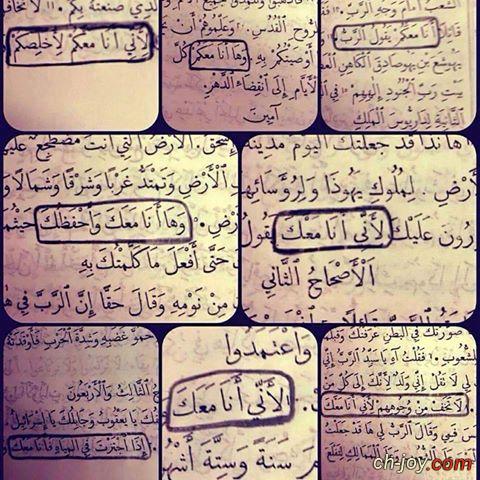 الشعب أمام وجه الرب.
قائلا أنا معكم يقول الرب
يهوشع بن يهوصادق الكاهن
بيت رب الجنود إلههم
الثانية لداريوس الملك
الروح القدس. وعلموهم أن
أوصيتكم به. وها أنا معكم كل
الأيام إلى انقضاء الدهر.
آمين
الذي صنعته بكم
لأني أنا معكم لأخلصكم
هأنذا قد جعلتك اليوم مدينة
الأرض. لملوك يهوذا ولرؤسائها
يقدرون عليك لأني أنا معك يقول
الأصحاح الثاني
إسحق. الأرض التي أنت مضطجع عليها
الأرض وتمتد غربا وشرقا وشمالا
الأرض. وها أنا معك وأحفظك حيثما
حتى أفعل ما كلمتك به
من نومه وقال حقا إن الرب في
صورتك في البطن عرفتك وقبلما
للشعوب. فقلت آه يا سيد الرب إني
لي لا تقل إني ولد لأنك إلى كل من
لا تخف من وجوههم لأني أنا معك
فمي وقال الرب لي ها قد جعلت
واعتمدوا
لأني أنا معك
سنة وستة أشهر
حمو غضبه وشدة الحرب فأوقدته
الثالث والأربعون
خالقك يا يعقوب وجابلك يا إسرائيل
إذا اجتزت في المياه فأنا معك
ch-joy.com